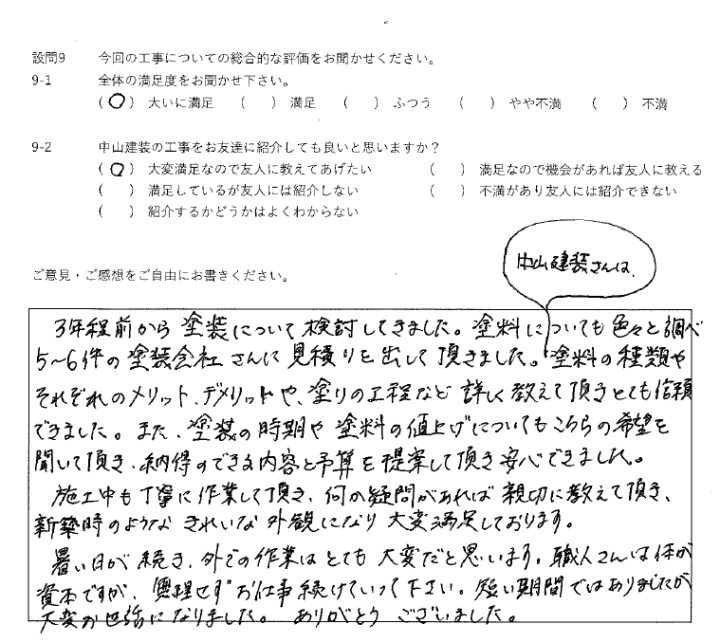 設問9 今回の工事についての総合的な評価をお聞かせください。
9-1 全体の満足度をお聞かせ下さい。
(○) 大いに満足 ( ) 満足 ( ) ふつう ( ) やや不満 ( ) 不満
9-2 中山建装の工事をお友達に紹介しても良いと思いますか？
(○) 大変満足なので友人に教えてあげたい ( ) 満足なので機会があれば友人に教える
( ) 満足しているが友人には紹介しない ( ) 不満があり友人には紹介できない
( ) 紹介するかどうかはよくわからない
ご意見・ご感想をご自由にお書きください。
中山建装さんは、
3年程前から塗装について検討してきました。塗料についても色々と調べ
5～6件の塗装会社さんに見積りを出して頂きました。塗料の種類や
それぞれのメリット、デメリットや、塗りの工程など詳しく教えて頂きとても信頼
できました。また、塗装の時期や塗料の値上げについてもこちらの希望を
聞いて頂き、納得のできる内容と予算を提案して頂き安心できました。
施工中も丁寧に作業して頂き、何か疑問があれば親切に教えて頂き、
新築時のようなきれいな外観になり大変満足しております。
暑い日が続き、外での作業はとても大変だと思います。職人さんは体が
資本ですが、無理せずお仕事続けていって下さい。短い期間ではありましたが
大変お世話になりました。ありがとうございました。